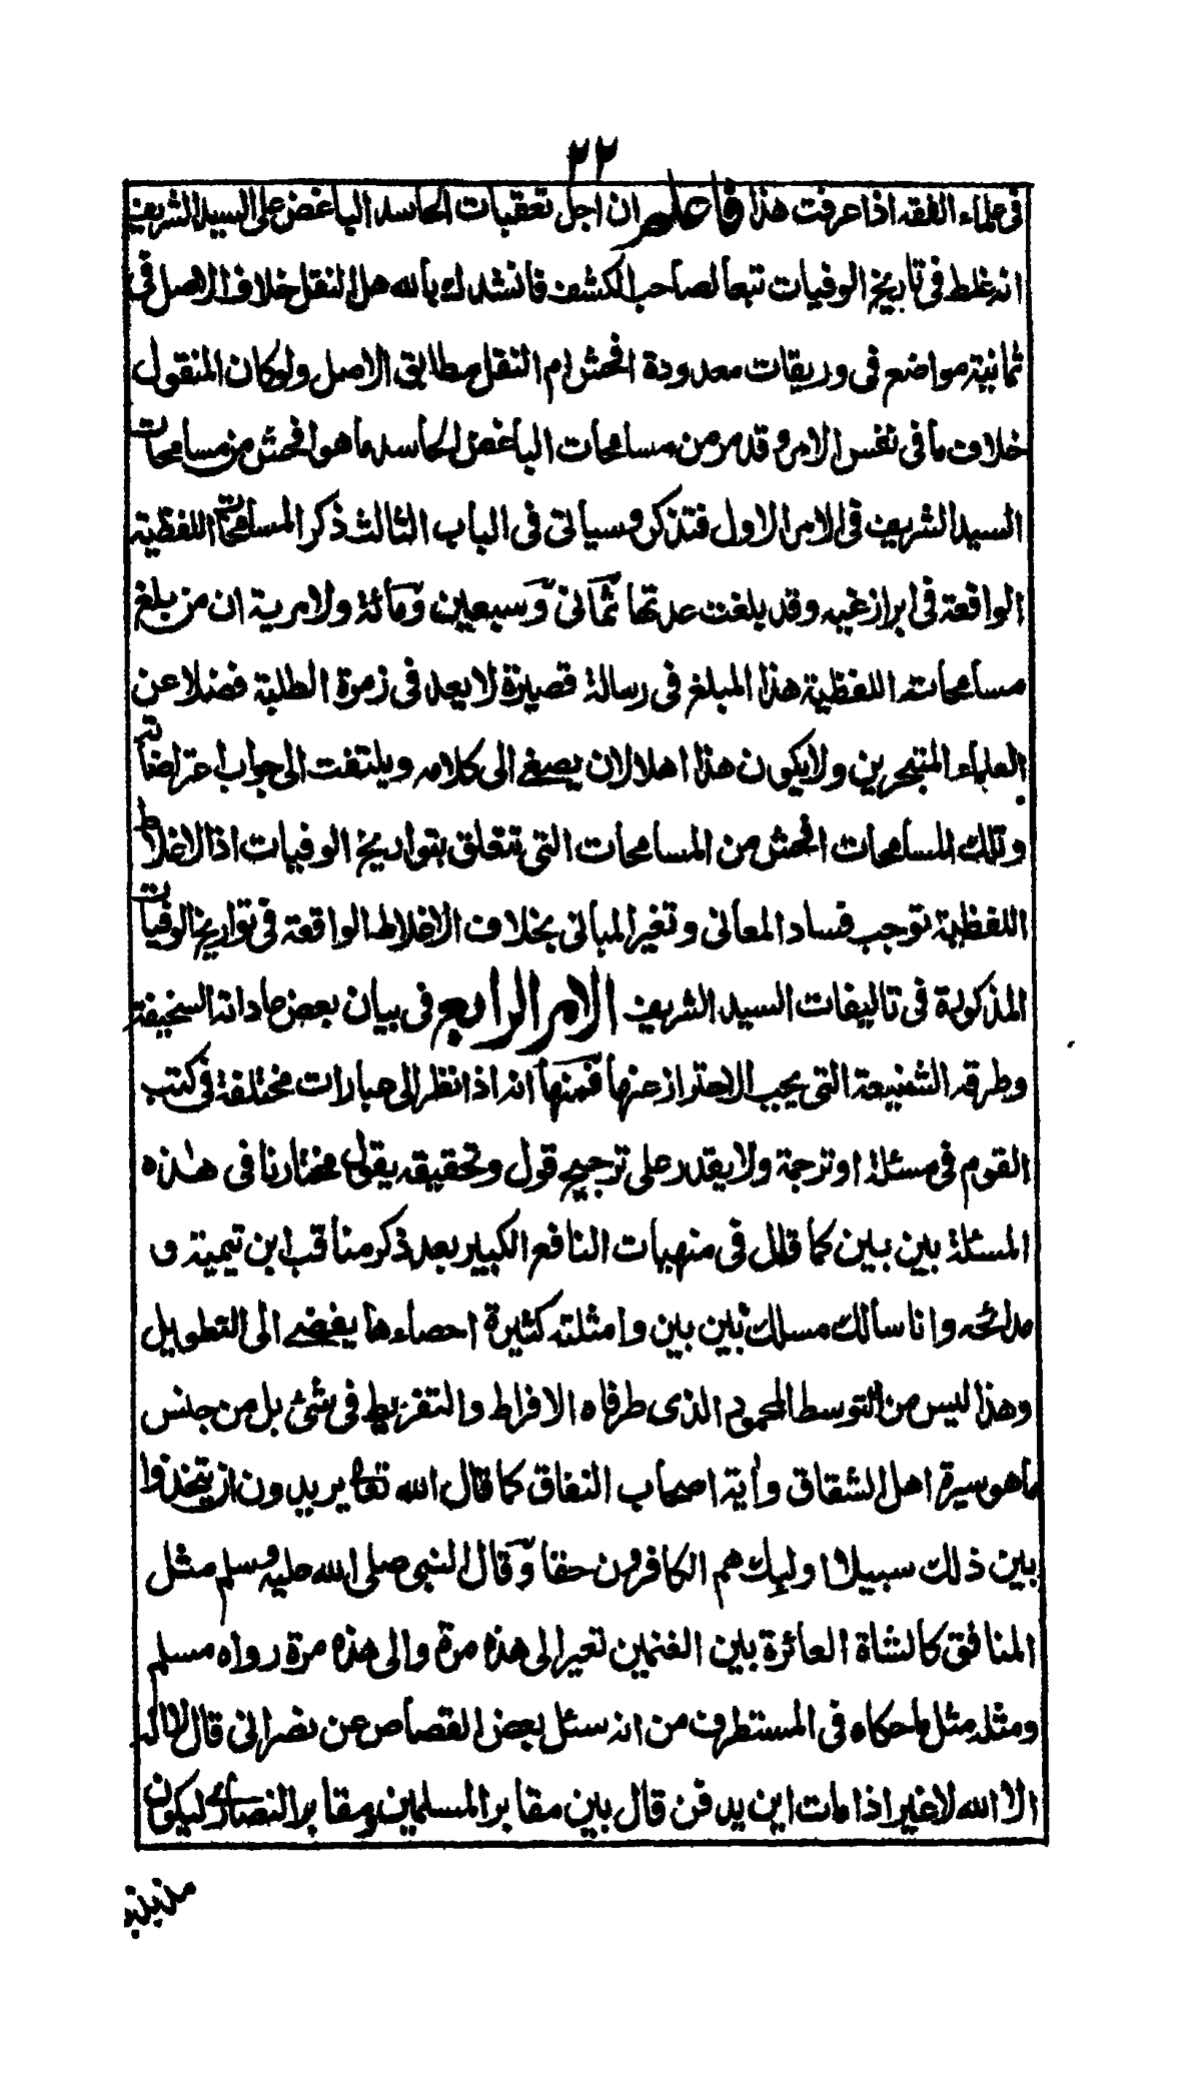 ٢٢
فى علماء الفقه اذا عرفت هذا فاعلم ان اجل تعقبات الحاسد الباغض على السيد الشريف
انه غلط فى تاريخ الوفيات تبعا لصاحب الكشف فانشدك بالله هل النقل خلاف الاصل فى
ثمانية مواضع فى وريقات معدودة افحش ام النقل مطابق الاصل ولو كان المنقول
خلاف ما فى نفس الامر وقد مر من مسامحات الباغض الحاسد ما هو افحش من مسامحات
السيد الشريف فى الامر الاول فتذكر وسياتى فى الباب الثالث ذكر المسامحات اللفظية
الواقعة فى ابراز غيه وقد بلغت عدتها ثمانى وسبعين ومائة ولا مرية ان من بلغ
مسامحاته اللفظية هذا المبلغ فى رسالة قصيرة لا يعد فى زمرة الطلبة فضلا عن
العلماء المتبحرين ولا يكون هذا اهلا لان يصغے الى كلامه ويلتفت الى جواب اعتراضاته
وتلك المسامحات افحش من المسامحات التى تتعلق بتواريخ الوفيات اذ الاغلاط
اللفظية توجب فساد المعانى وتغير المبانى بخلاف الاغلاط الواقعة فى تواريخ الوفيات
المذكورة فى تاليفات السيد الشريف الامر الرابع فى بيان بعض عاداته السخيفة
وطرقه الشنيعة التى يجب الاحتراز عنها فمنها انه اذا نظر الى عبارات مختلفة فى كتب
القوم فى مسئلة او ترجمة ولا يقدر على ترجيح قول وتحقيقه يقول مختارنا فى هذه
المسئلة بين بين كما قال فى منهيات النافع الكبير بعد ذكر مناقب ابن تيمية و
مدائحه وانا سالك مسلك بين بين وامثلته كثيرة احصاءها يفضے الى التطويل
وهذا ليس من التوسط المحمود الذى طرفاه الافراط والتفريط فى شئ بل من جنس
ما هو سيرة اهل الشقاق وأية اصحاب النفاق كما قال الله تعالى يريدون ان يتخذوا
بين ذلك سبيلا اولئك هم الكافرون حقا وقال النبى صلى الله عليه وسلم مثل
المنافق كالشاة العائرة بين الغنمين تعير الى هذه مرة والى هذه مرة رواه مسلم
ومثله مثل ما حكاه فى المستطرف من انه سئل بعض القصاص عن نصرانى قال لا اله
الا الله لا غير اذا مات اين يدفن قال بين مقابر المسلمين ومقابر النصارے ليكون
مذبذبا